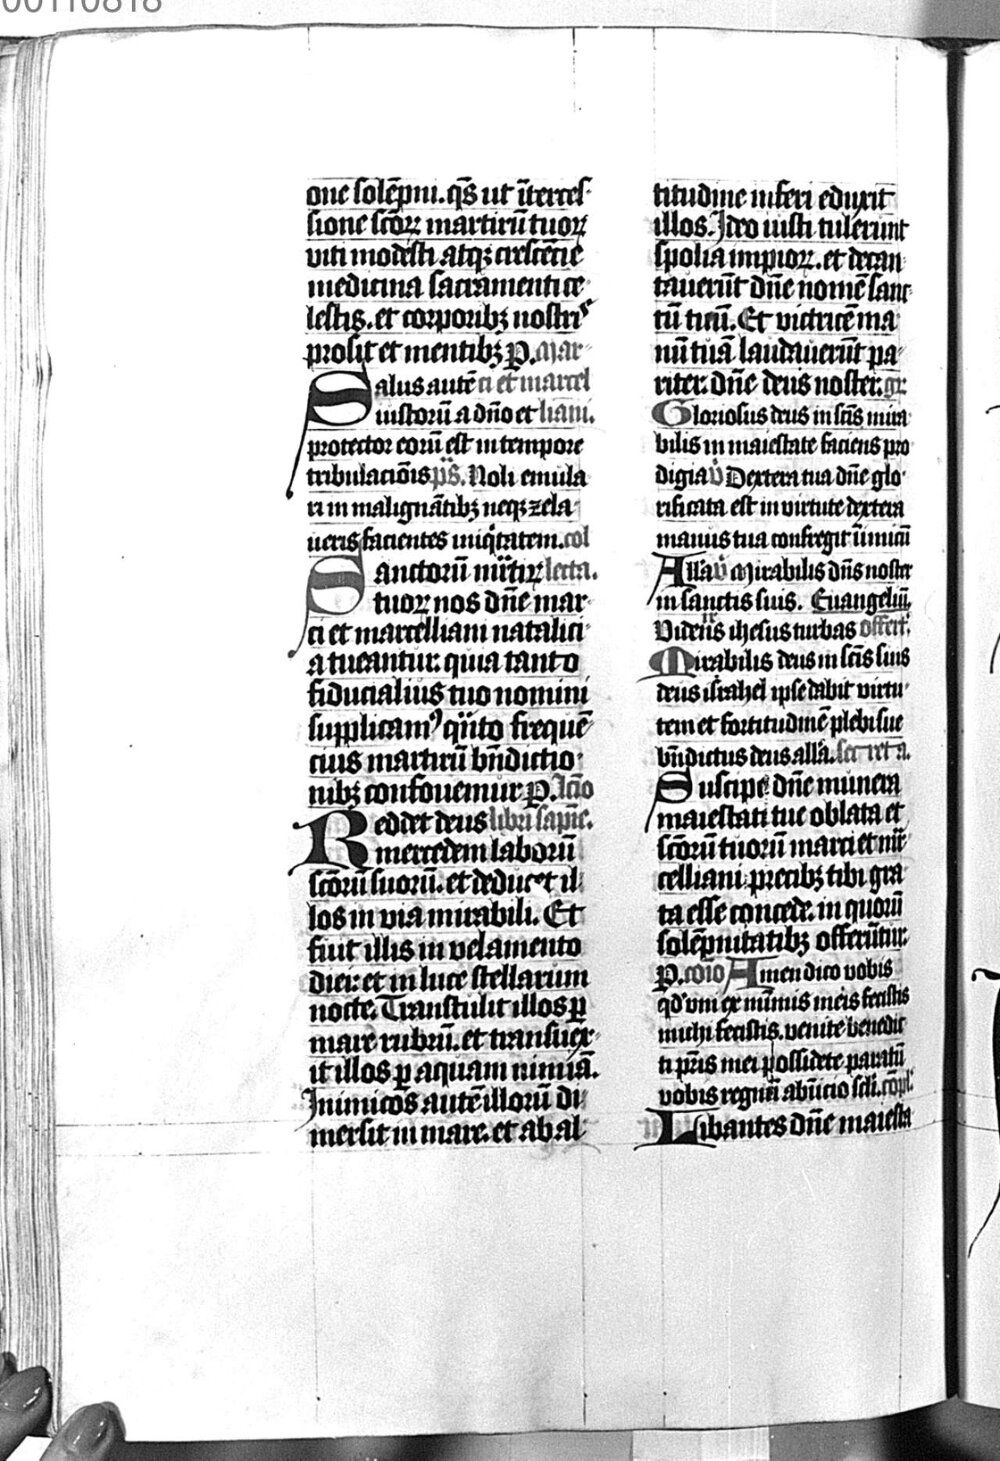 00110818
one solēpni. qs̄ ut ītercess
sione scōꝝ martirū tuoꝝ
viti modesti atqꝫ crescētie
medicina sacramenti ce
lestis. et corporibꝫ nostris
prosit et mentibꝫ P. Mar
Salus autē ci et marcel
iustorū a dn̄o et liani.
protector eorū est in tempore
tribulaciōis ps̄. Noli emula
ri in malignātibꝫ neqꝫ zela
ueris facientes iniqͥtatem. col
Sanctorū mr̄tiꝝ lecta.
tuoꝝ nos dn̄e mar
ci et marcelliani natalici
a tueantur. quia tanto
fiducialius tuo nomini
supplicamꝰ qͣnto frequē
cius martirū bn̄dictio
nibꝫ confouemur P. lcīo
Reddet deus libri sapīe.
mercedem laborū
scōrū suorū. et deducet il
los in via mirabili. Et
fuit illis in velamento
diei: et in luce stellarum
nocte. Transtulit illos ꝑ
mare rubrū. et transuex
it illos ꝑ aquam nimiā.
Inimicos autē illorū di
mersit in mare. et ab al
titudine inferi eduxit
illos. Ideo iusti tulerunt
spolia impioꝝ. et decan
tauerūt dn̄e nomē sanc
tū tuū. Et victricē ma
nū tuā laudauerūt pa
riter. dn̄e deus noster. gr̄.
Gloriosus deus in scīs mira
bilis in maiestate faciens pro
digia v̄ Dextera tua dn̄e glo
rificata est in virtute dextera
manus tua confregit inimici
Alla v̄ Mirabilis dn̄s noster
in sanctis suis. Euangeliū.
Videns ihesus turbas offert.
Mirabilis deus in scīs suis
deus israhel ipse dabit virtu
tem et fortitudinē plebi sue
bn̄dictus deus alla. secreta.
Suscipe dn̄e munera
maiestati tue oblata et
scōrū tuorū marci et mr̄
celliani precibꝫ tibi gra
ta esse concede. in quorū
solēpnitatibꝫ offerūtur.
P. cōio Amen dico vobis
qd' vni ex minimis meis fecistis
michi fecistis. venite benedic
ti pr̄is mei possidete paratū
vobis regnū ab inicio scli. cōpl.
Libantes dn̄e maiesta